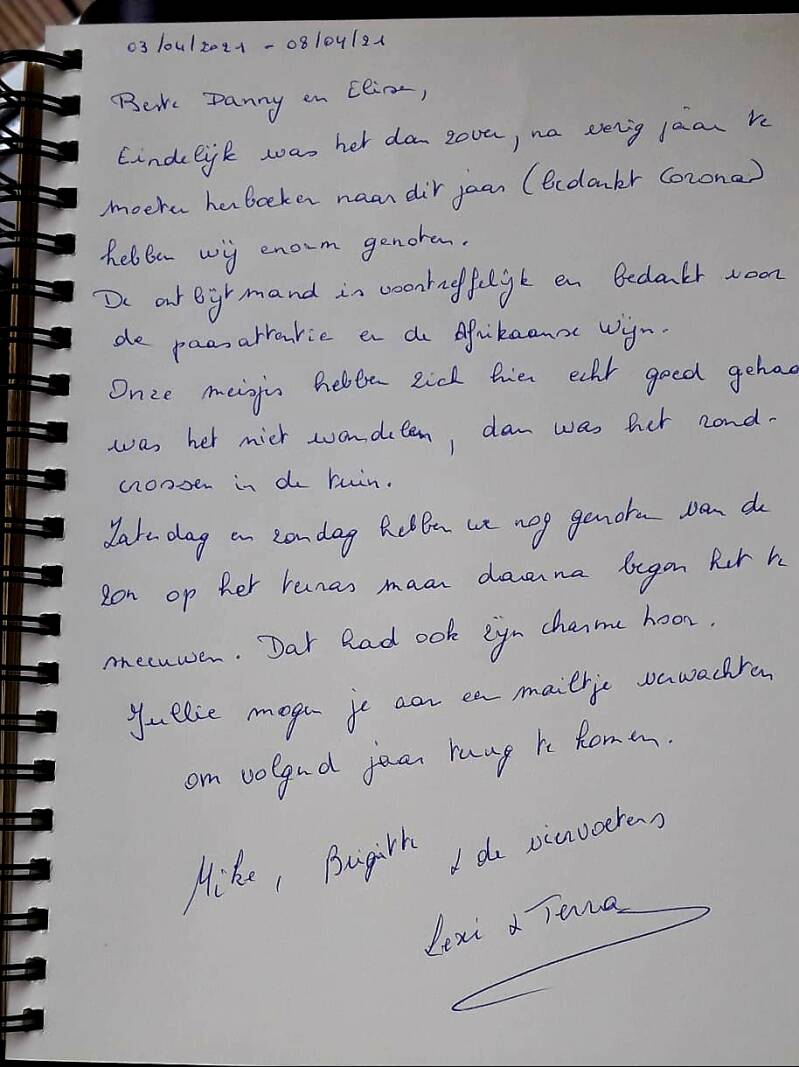 03/04/2021 - 08/04/21
Beste Danny en Elise,
Eindelijk was het dan zover, na verig jaar te
moeten herboeken naar dit jaar (bedankt Corona)
hebben wij enorm genoten.
De ontbijtmand is voortreffelijk en bedankt voor
de paasattentie en de Afrikaanse Wijn.
Onze meisjes hebben zich hier echt goed gehad
was het niet wandelen, dan was het rond-
crossen in de tuin.
Zaterdag en zondag hebben we nog genoten van de
zon op het terras maar daarna begon het te
sneeuwen. Dat had ook zijn charme hoor.
Jullie mogen je aan een mailtje verwachten
om volgend jaar terug te komen.
Mike, Brigitte & de viervoeters
Lexi & Terra